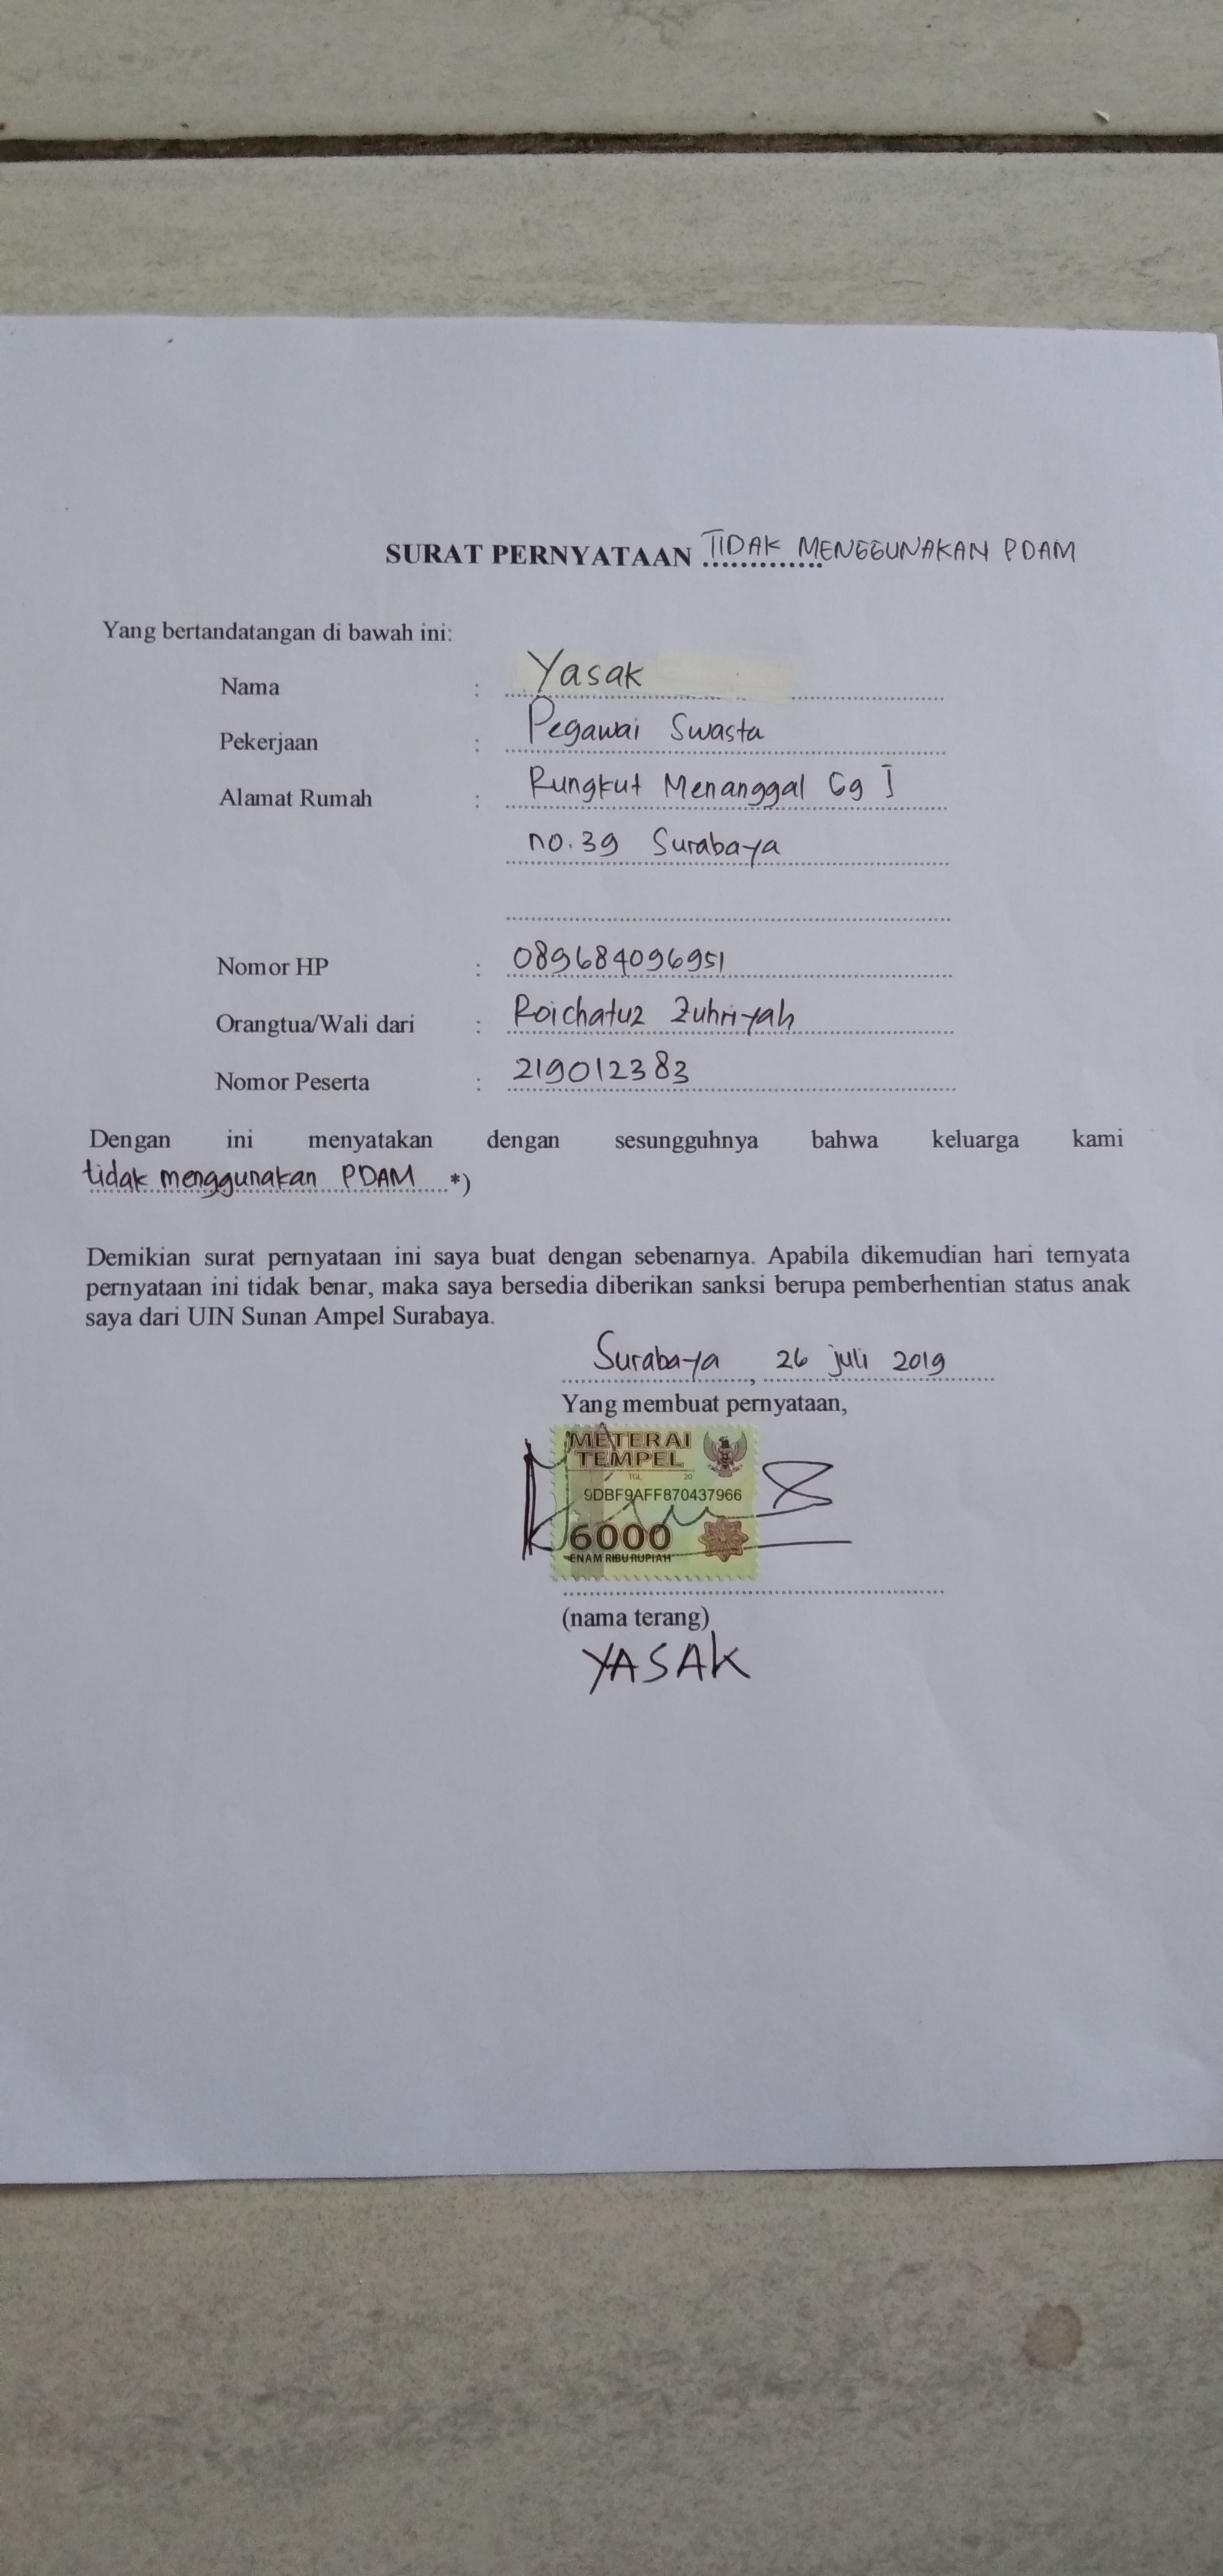 SURAT PERNYATAAN TIDAK MENGGUNAKAN PDAM
Yang bertandatangan di bawah ini:
Nama : Yasak
Pekerjaan : Pegawai Swasta
Alamat Rumah : Rungkut Menanggal Gg I
no. 39 Surabaya
Nomor HP : 089684096951
Orangtua/Wali dari : Roichatuz Zuhriyah
Nomor Peserta : 219012383
Dengan ini menyatakan dengan sesungguhnya bahwa keluarga kami
tidak menggunakan PDAM *)
Demikian surat pernyataan ini saya buat dengan sebenarnya. Apabila dikemudian hari ternyata
pernyataan ini tidak benar, maka saya bersedia diberikan sanksi berupa pemberhentian status anak
saya dari UIN Sunan Ampel Surabaya.
Surabaya, 26 juli 2019
Yang membuat pernyataan,
METERAI
TEMPEL
TGL 20
9DBF9AFF870437966
6000
ENAM RIBU RUPIAH
(nama terang)
YASAK